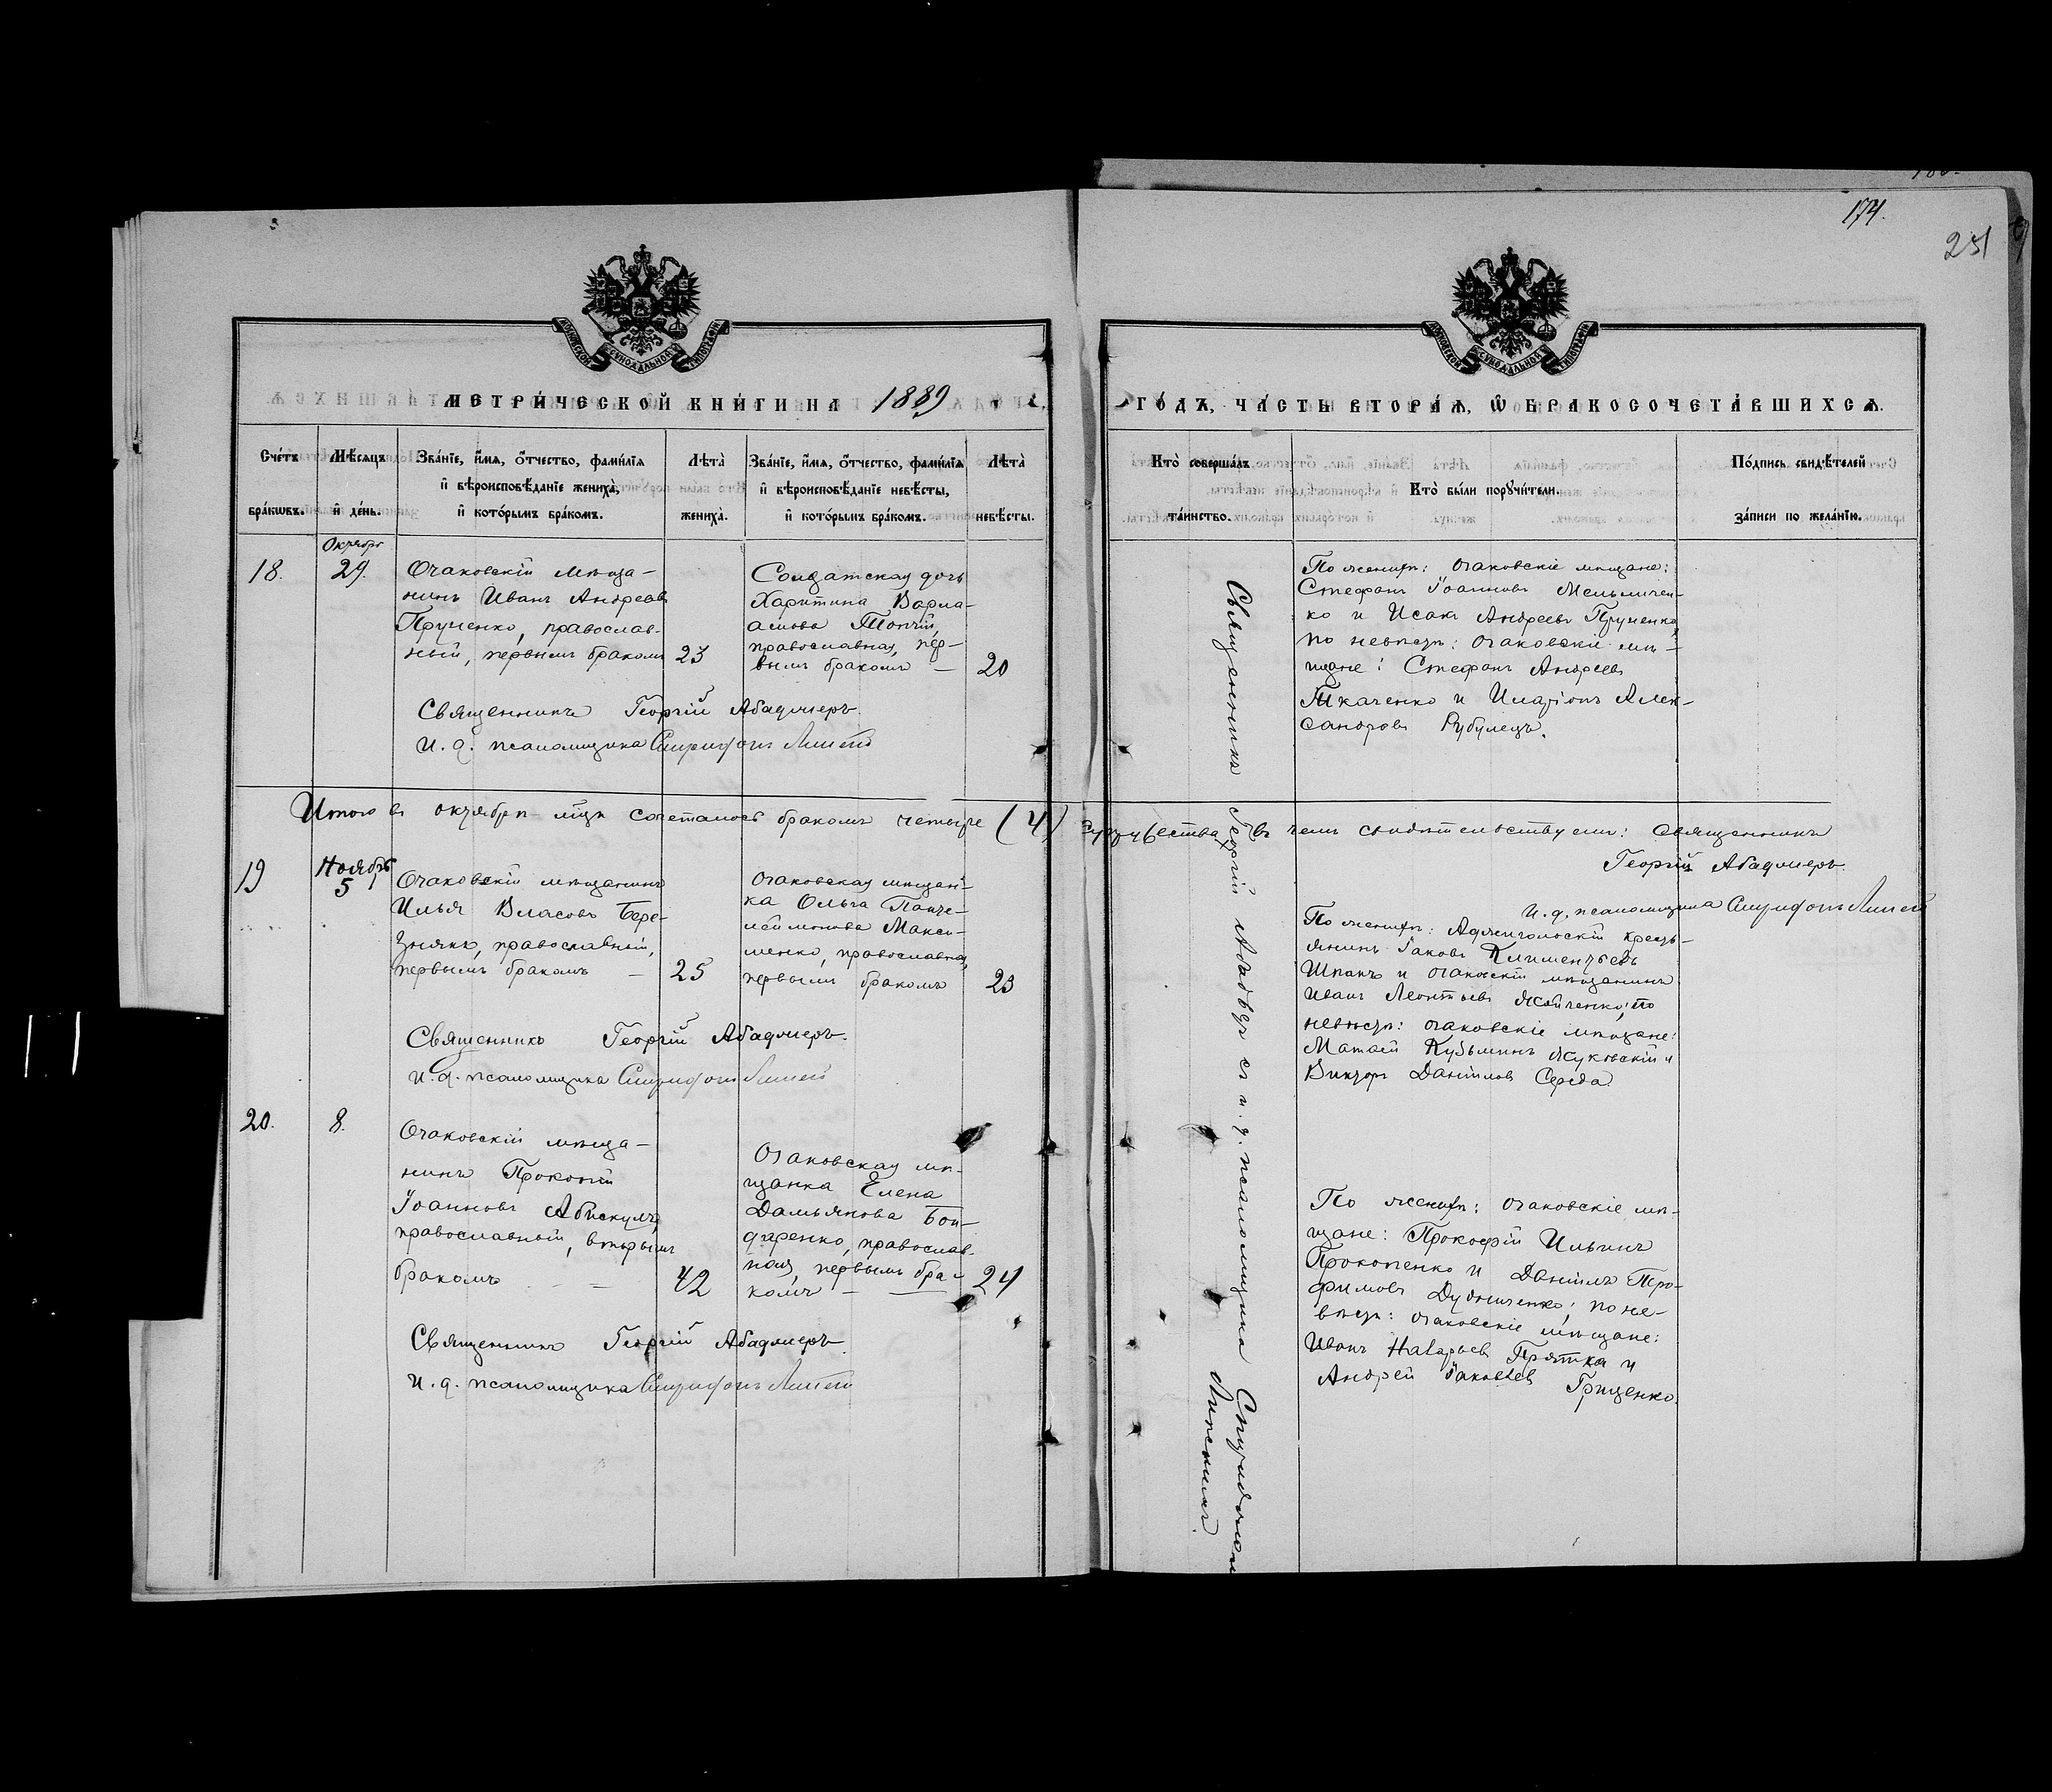 174.
251
МОСКОВСКОЙ СУНОДАЛЬНОЙ ТИПОГРАФІИ
МОСКОВСКОЙ СУНОДАЛЬНОЙ ТИПОГРАФІИ
МЕТРИ́ЧЕСКОЙ КНИ́ГИ НА 1889
ГО́ДЪ, ЧА́СТЬ ВТОРА́Ѧ, Ѽ БРАКОСОЧЕТА́ВШИХСѦ.
Сче́тъ бра́кѡвъ.
Мѣ́сѧцъ и҆ де́нь.
Зва́нїе, и҆́мѧ, ѻ҆́тчество, фами́лїѧ
и҆ вѣроисповѣ́данїе жениха̀,
и҆ кото́рымъ бра́комъ.
Лѣ́та жениха̀.
Зва́нїе, и҆́мѧ, ѻ҆́тчество, фами́лїѧ
и҆ вѣроисповѣ́данїе невѣ́сты,
и҆ кото́рымъ бра́комъ.
Лѣ́та невѣ́сты.
Кто̀ соверша́лъ
та́инство.
Кто̀ бы́ли порꙋчи́тели.
По́дпись свидѣ́телей
за́писи по жела́нїю.
18.
Октябрь
29.
Очаковскій мѣща-
нинъ Иванъ Андреевъ
Прученко, православ-
ный, первымъ бракомъ
23
Солдатская дочь
Харитина Варла-
амова Топчій,
православная, пер-
вымъ бракомъ —
20
По женихѣ: очаковскіе мѣщане:
Стефанъ Іоанновъ Мельничен-
ко и Исакъ Андреевъ Прученко,
по невѣстѣ: очаковскіе мѣ-
щане: Стефанъ Андреевъ
Ткаченко и Иларіонъ Алек-
сандровъ Рубулецъ.
Священникъ Георгій Абаджіеръ.
и. д. псаломщика Спиридонъ
Итого въ октябрѣ м-цѣ сочеталось бракомъ четыре (4) супружества въ чемъ свидѣтельствуемъ: Священникъ
Георгій Абаджіеръ.
и. д. псаломщика Спиридонъ
19
Ноябрь
5
Очаковскій мѣщанинъ
Илья Власовъ Бере-
знякъ, православный,
первымъ бракомъ —
25
Очаковская мѣщан-
ка Ольга Панте-
леймонова Макси-
менко, православная,
первымъ бракомъ
23
По женихѣ: Аджигольскій кресть-
янинъ Іаковъ Климентьевъ
Шпакъ и очаковскій мѣщанинъ
Иванъ Леонтьевъ по
невѣстѣ: очаковскіе мѣщане:
Матѳей Кузьминъ Жуковскій и
Викторъ Даніиловъ Середа
Священникъ Георгій Абаджіеръ.
и. д. псаломщика Спиридонъ
20.
8.
Очаковскій мѣща-
нинъ Прокопій
Іоанновъ
православный, вторымъ
бракомъ —
42
Очаковская мѣ-
щанка Елена
Дамьянова Бон-
даренко, православ-
ная, первымъ бра-
комъ —
24
По женихѣ: очаковскіе мѣ-
щане: Прокофій Ильинъ
Прокопенко и Даніилъ Тро-
фимовъ по не-
вѣстѣ: очаковскіе мѣщане:
Иванъ Назарьевъ и
Андрей Іаковлевъ Гриценко.
Священникъ Георгій Абаджіеръ.
и. д. псаломщика Спиридонъ
Священникъ Георгій съ и. д. псаломщика Спиридономъ
Липскимъ.